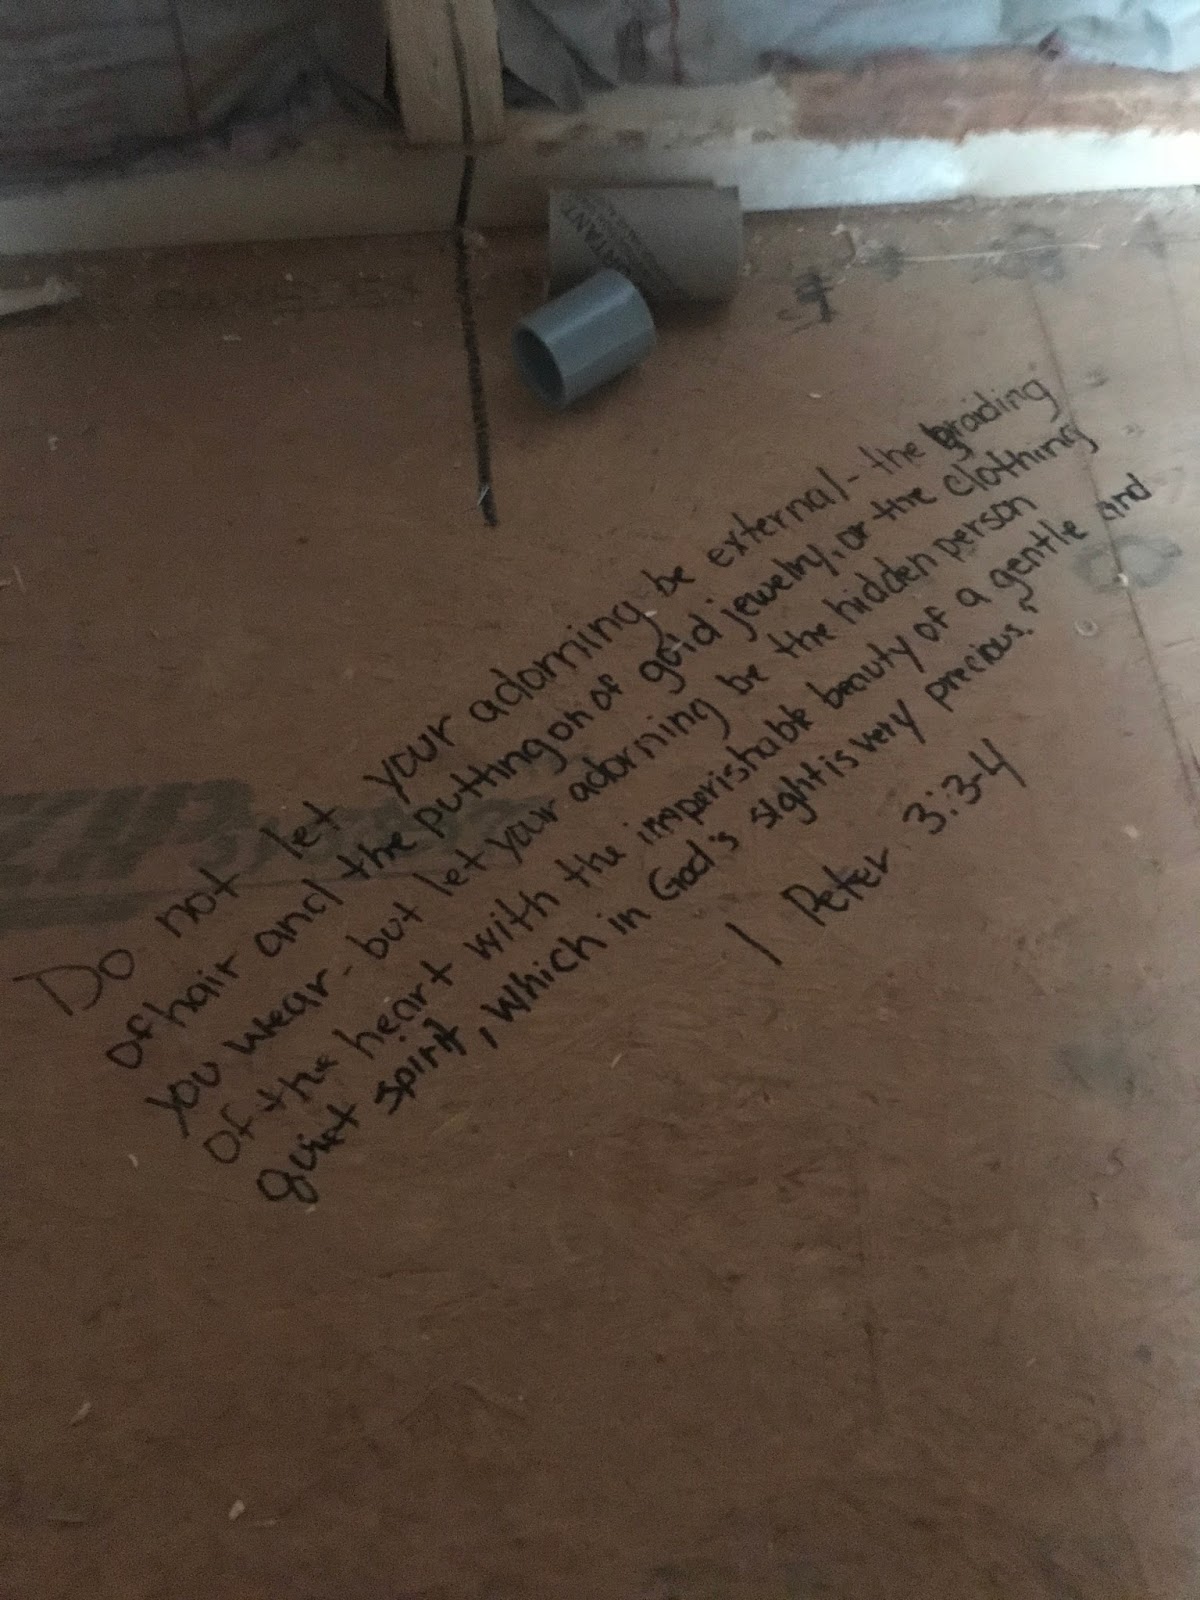 Do not let your adorning be external - the braiding
of hair and the putting on of gold jewelry, or the clothing
you wear - but let your adorning be the hidden person
of the heart with the imperishable beauty of a gentle and
quiet spirit, which in God's sight is very precious."
1 Peter 3:3-4